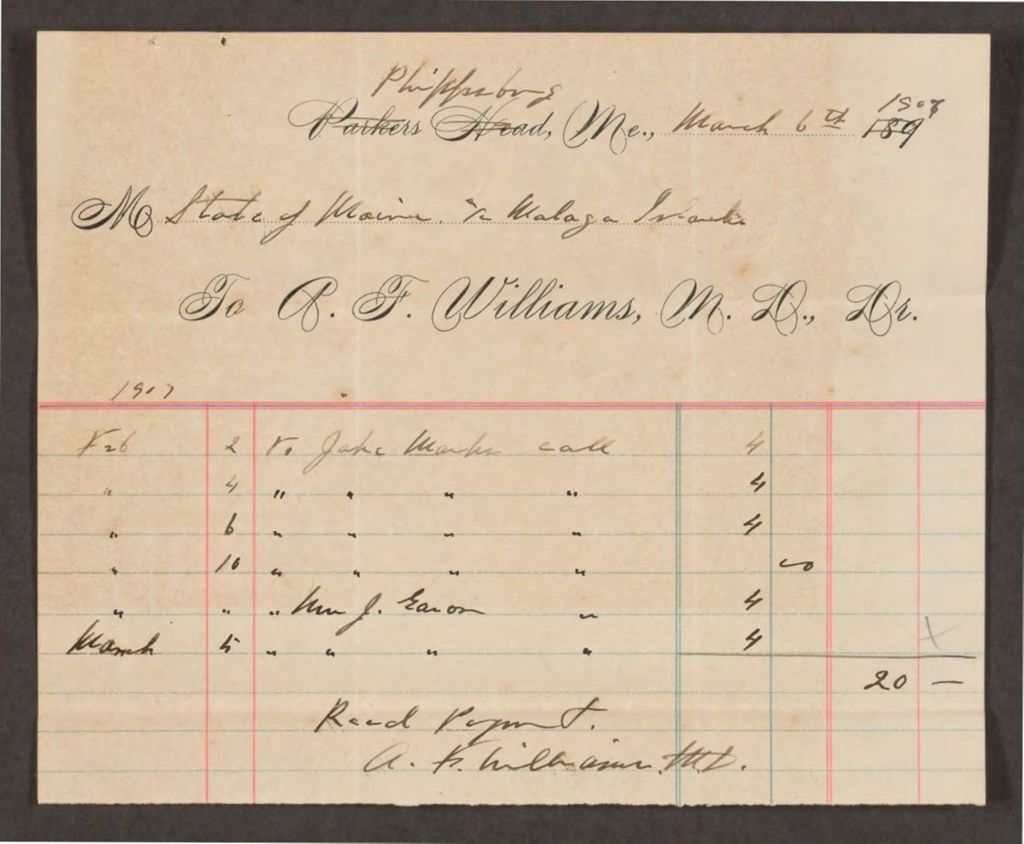 Phippsburg 1907
Parkers Head, Me., March 6th 189
M State of Maine. a/c Malaga Islands
To A. F. Williams, M. D., Dr.
1907
Feb 2 To Jake Marks call 4
" 4 " " " " 4
" 6 " " " " 4
" 10 " " " "
" " " Wm J. Eason " 4
March 5 " " " " 4
20 —
Recd Paymt.
A. F. Williams M.D.